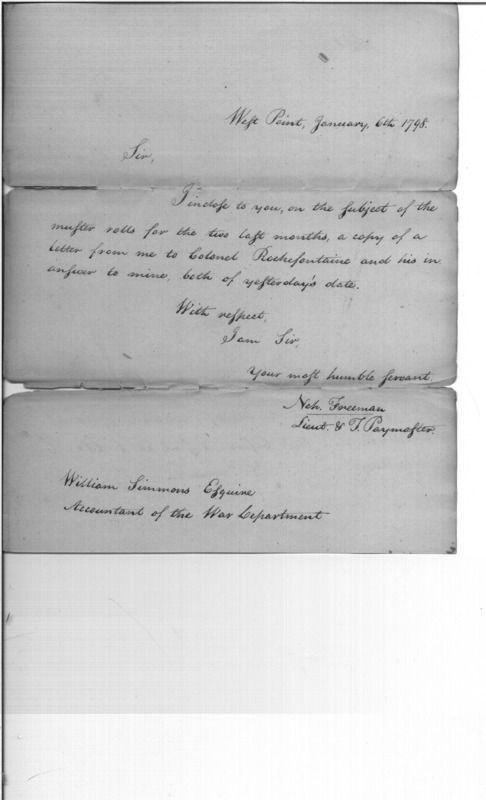 West Point, January, 6th 1798.
Sir,
I inclose to you, on the subject of the
muster rolls for the two last months, a copy of a
letter from me to Colonel Rochefontaine and his in
answer to mine, both of yesterday's date.
With respect,
I am Sir,
Your most humble servant,
Neh. Freeman
Lieut. & T. Paymaster.
William Simmons Esquire
Accountant of the War Department